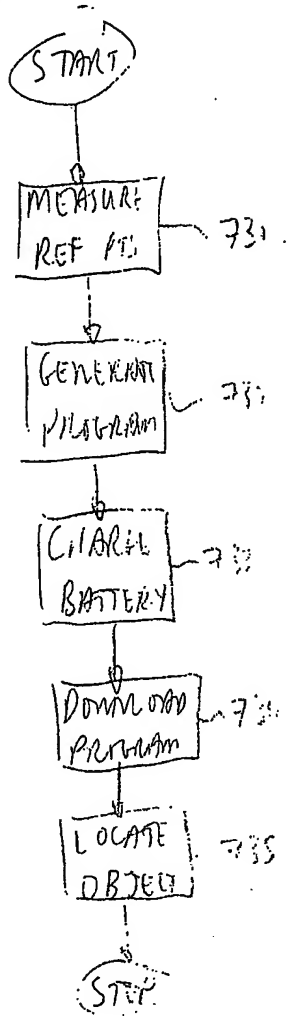 START
MEASURE
REF PTS
731
GENERATE
PROGRAM
CHARGE
BATTERY
733
DOWNLOAD
PROGRAM
734
LOCATE
OBJECT
735
STOP